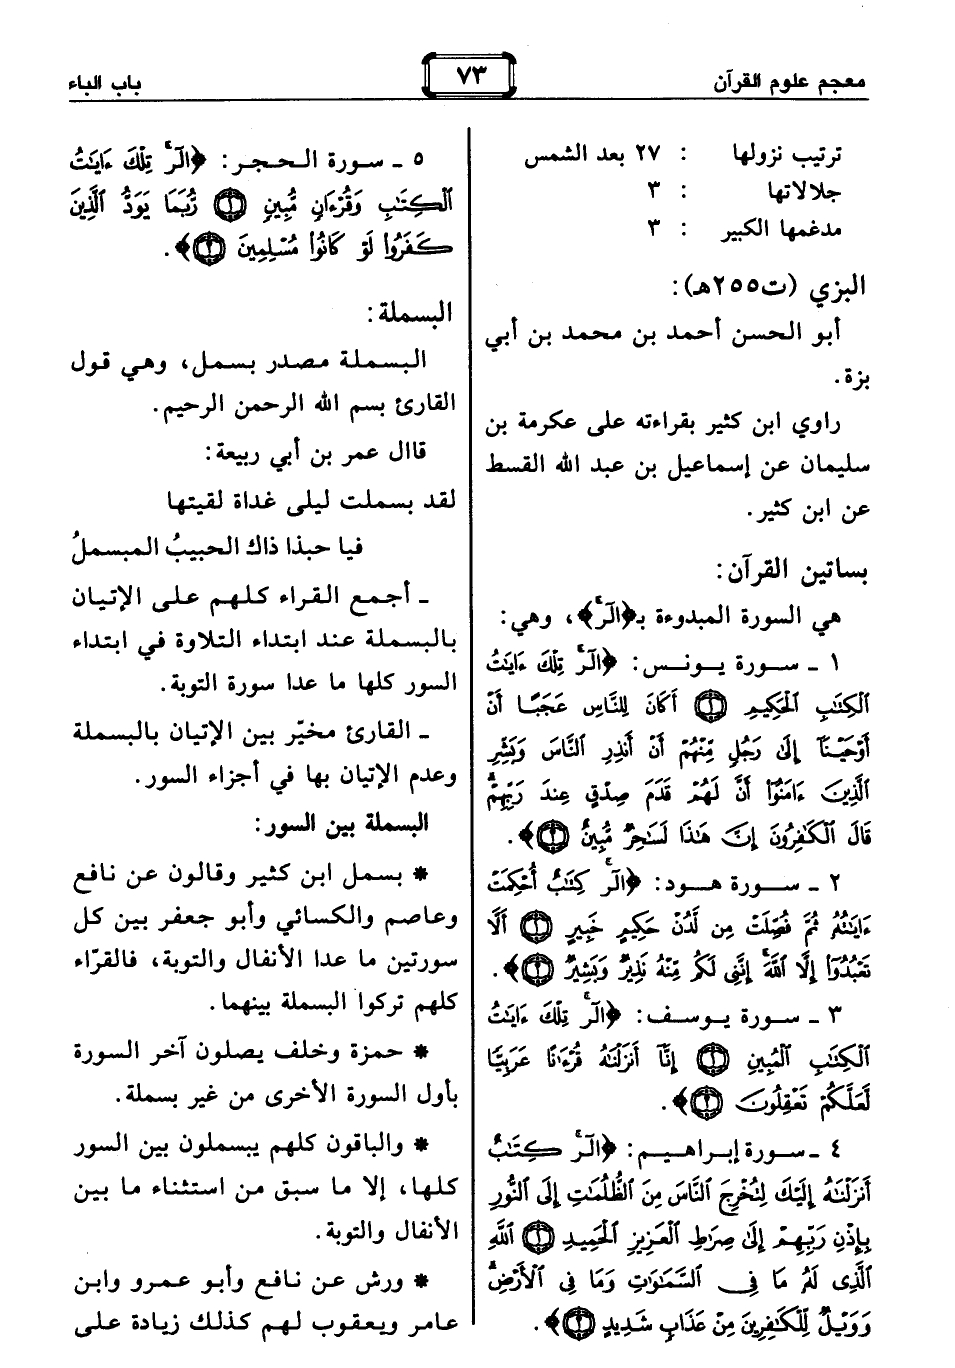 معجم علوم القرآن
٧٣
باب الباء
ترتيب نزولها : ٢٧ بعد الشمس
جلالاتها : ٣
مدغمها الكبير : ٣
البزي (ت٢٥٥هـ):
أبو الحسن أحمد بن محمد بن أبي
بزة.
راوي ابن كثير بقراءته على عكرمة بن
سليمان عن إسماعيل بن عبد الله القسط
عن ابن كثير.
بساتين القرآن:
هي السورة المبدوءة بـ﴿الٓرۚ﴾، وهي:
١ ـ سورة يونس: ﴿الٓرۚ تِلْكَ ءَايَٰتُ
الْكِتَٰبِ الْحَكِيمِ ۝١ أَكَانَ لِلنَّاسِ عَجَبًا أَنْ
أَوْحَيْنَآ إِلَىٰ رَجُلٍ مِّنْهُمْ أَنْ أَنذِرِ النَّاسَ وَبَشِّرِ
الَّذِينَ ءَامَنُوٓا أَنَّ لَهُمْ قَدَمَ صِدْقٍ عِندَ رَبِّهِمْۗ
قَالَ الْكَٰفِرُونَ إِنَّ هَٰذَا لَسَٰحِرٌ مُّبِينٌ ۝٢﴾.
٢ ـ سورة هود: ﴿الٓرۚ كِتَٰبٌ أُحْكِمَتْ
ءَايَٰتُهُۥ ثُمَّ فُصِّلَتْ مِن لَّدُنْ حَكِيمٍ خَبِيرٍ ۝١ أَلَّا
تَعْبُدُوٓا إِلَّا اللَّهَۚ إِنَّنِى لَكُم مِّنْهُ نَذِيرٌ وَبَشِيرٌ ۝٢﴾.
٣ ـ سورة يوسف: ﴿الٓرۚ تِلْكَ ءَايَٰتُ
الْكِتَٰبِ الْمُبِينِ ۝١ إِنَّآ أَنزَلْنَٰهُ قُرْءَٰنًا عَرَبِيًّا
لَّعَلَّكُمْ تَعْقِلُونَ ۝٢﴾.
٤ ـ سورة إبراهيم: ﴿الٓرۚ كِتَٰبٌ
أَنزَلْنَٰهُ إِلَيْكَ لِتُخْرِجَ النَّاسَ مِنَ الظُّلُمَٰتِ إِلَى النُّورِ
بِإِذْنِ رَبِّهِمْ إِلَىٰ صِرَٰطِ الْعَزِيزِ الْحَمِيدِ ۝١ اللَّهِ
الَّذِى لَهُۥ مَا فِى السَّمَٰوَٰتِ وَمَا فِى الْأَرْضِۗ
وَوَيْلٌ لِّلْكَٰفِرِينَ مِنْ عَذَابٍ شَدِيدٍ ۝٢﴾.
٥ ـ سورة الحجر: ﴿الٓرۚ تِلْكَ ءَايَٰتُ
الْكِتَٰبِ وَقُرْءَانٍ مُّبِينٍ ۝١ رُّبَمَا يَوَدُّ الَّذِينَ
كَفَرُوا لَوْ كَانُوا مُسْلِمِينَ ۝٢﴾.
البسملة:
البسملة مصدر بسمل، وهي قول
القارئ بسم الله الرحمن الرحيم.
قاال عمر بن أبي ربيعة:
لقد بسملت ليلى غداة لقيتها
فيا حبذا ذاك الحبيبُ المبسملُ
ـ أجمع القراء كلهم على الإتيان
بالبسملة عند ابتداء التلاوة في ابتداء
السور كلها ما عدا سورة التوبة.
ـ القارئ مخيّر بين الإتيان بالبسملة
وعدم الإتيان بها في أجزاء السور.
البسملة بين السور:
* بسمل ابن كثير وقالون عن نافع
وعاصم والكسائي وأبو جعفر بين كل
سورتين ما عدا الأنفال والتوبة، فالقرّاء
كلهم تركوا البسملة بينهما.
* حمزة وخلف يصلون آخر السورة
بأول السورة الأخرى من غير بسملة.
* والباقون كلهم يبسملون بين السور
كلها، إلا ما سبق من استثناء ما بين
الأنفال والتوبة.
* ورش عن نافع وأبو عمرو وابن
عامر ويعقوب لهم كذلك زيادة على